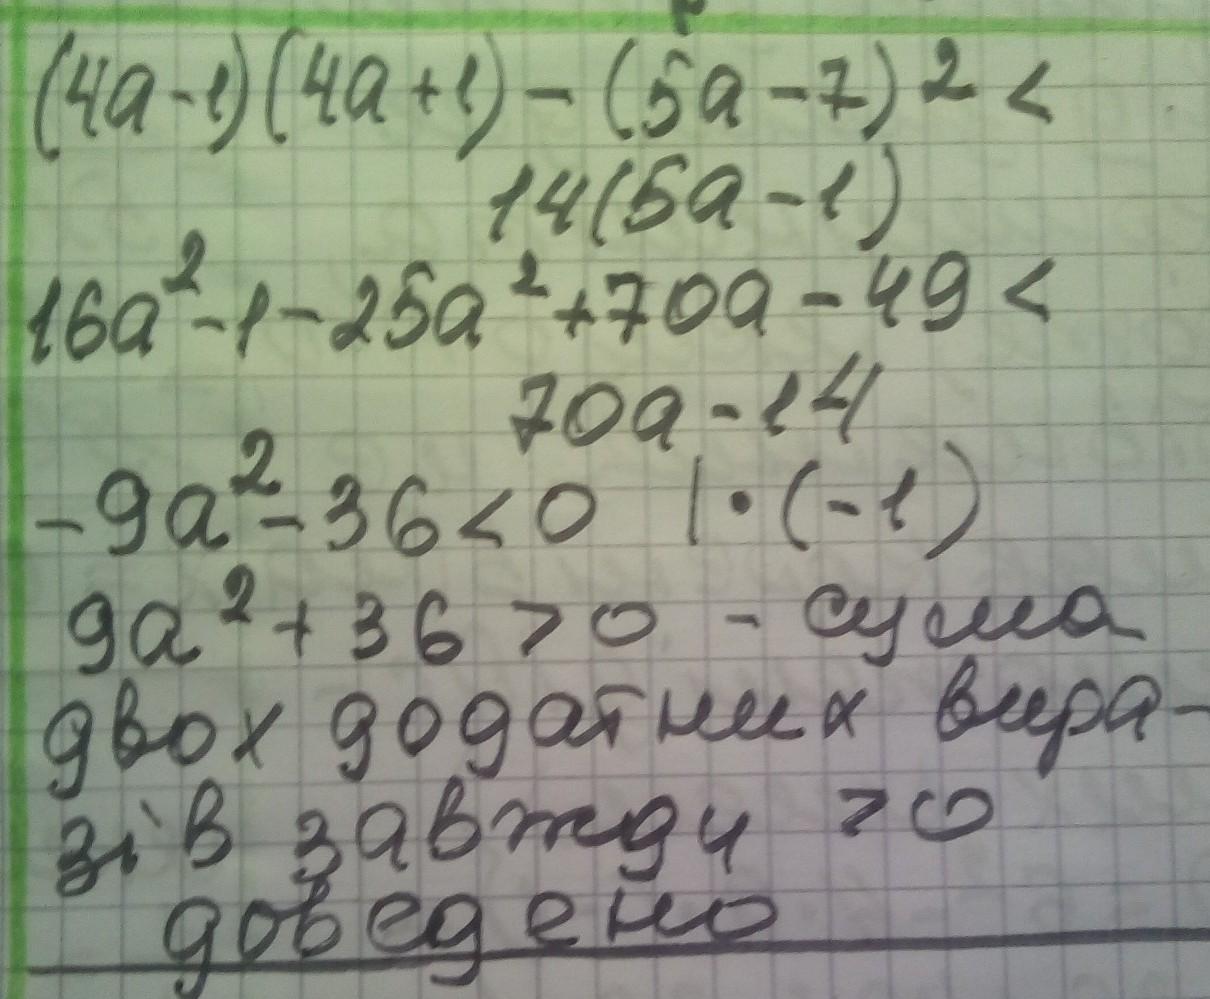 (4a-1)(4a+1)-(5a-7)2<
14(5a-1)
16a²-1-25a²+70a-49<
70a-14
-9a²-36<0 |·(-1)
9a²+36>0 - сума
двох додатних вира-
зів завжди >0
доведено